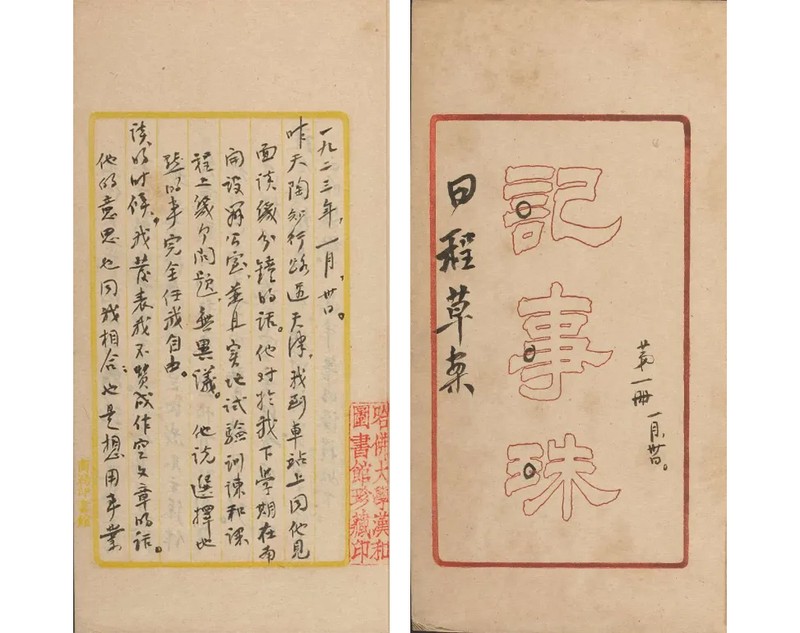 記事珠
日程草案
第一冊 一月，卅日。
哈佛大學漢和
圖書館珍藏印
一九二三年，一月，卅日。
昨天陶知行路過天津，我到車站上同他見
面談幾分鐘的話。他对於我下學期在南
開設辦公室，並且实地试验训谏和課
程上幾个問題，無異議。他说選擇地
點的事完全任我自由。
談的时候，我發表我不赞成作空文章的話。
他的意思也同我相合；也是想用事業